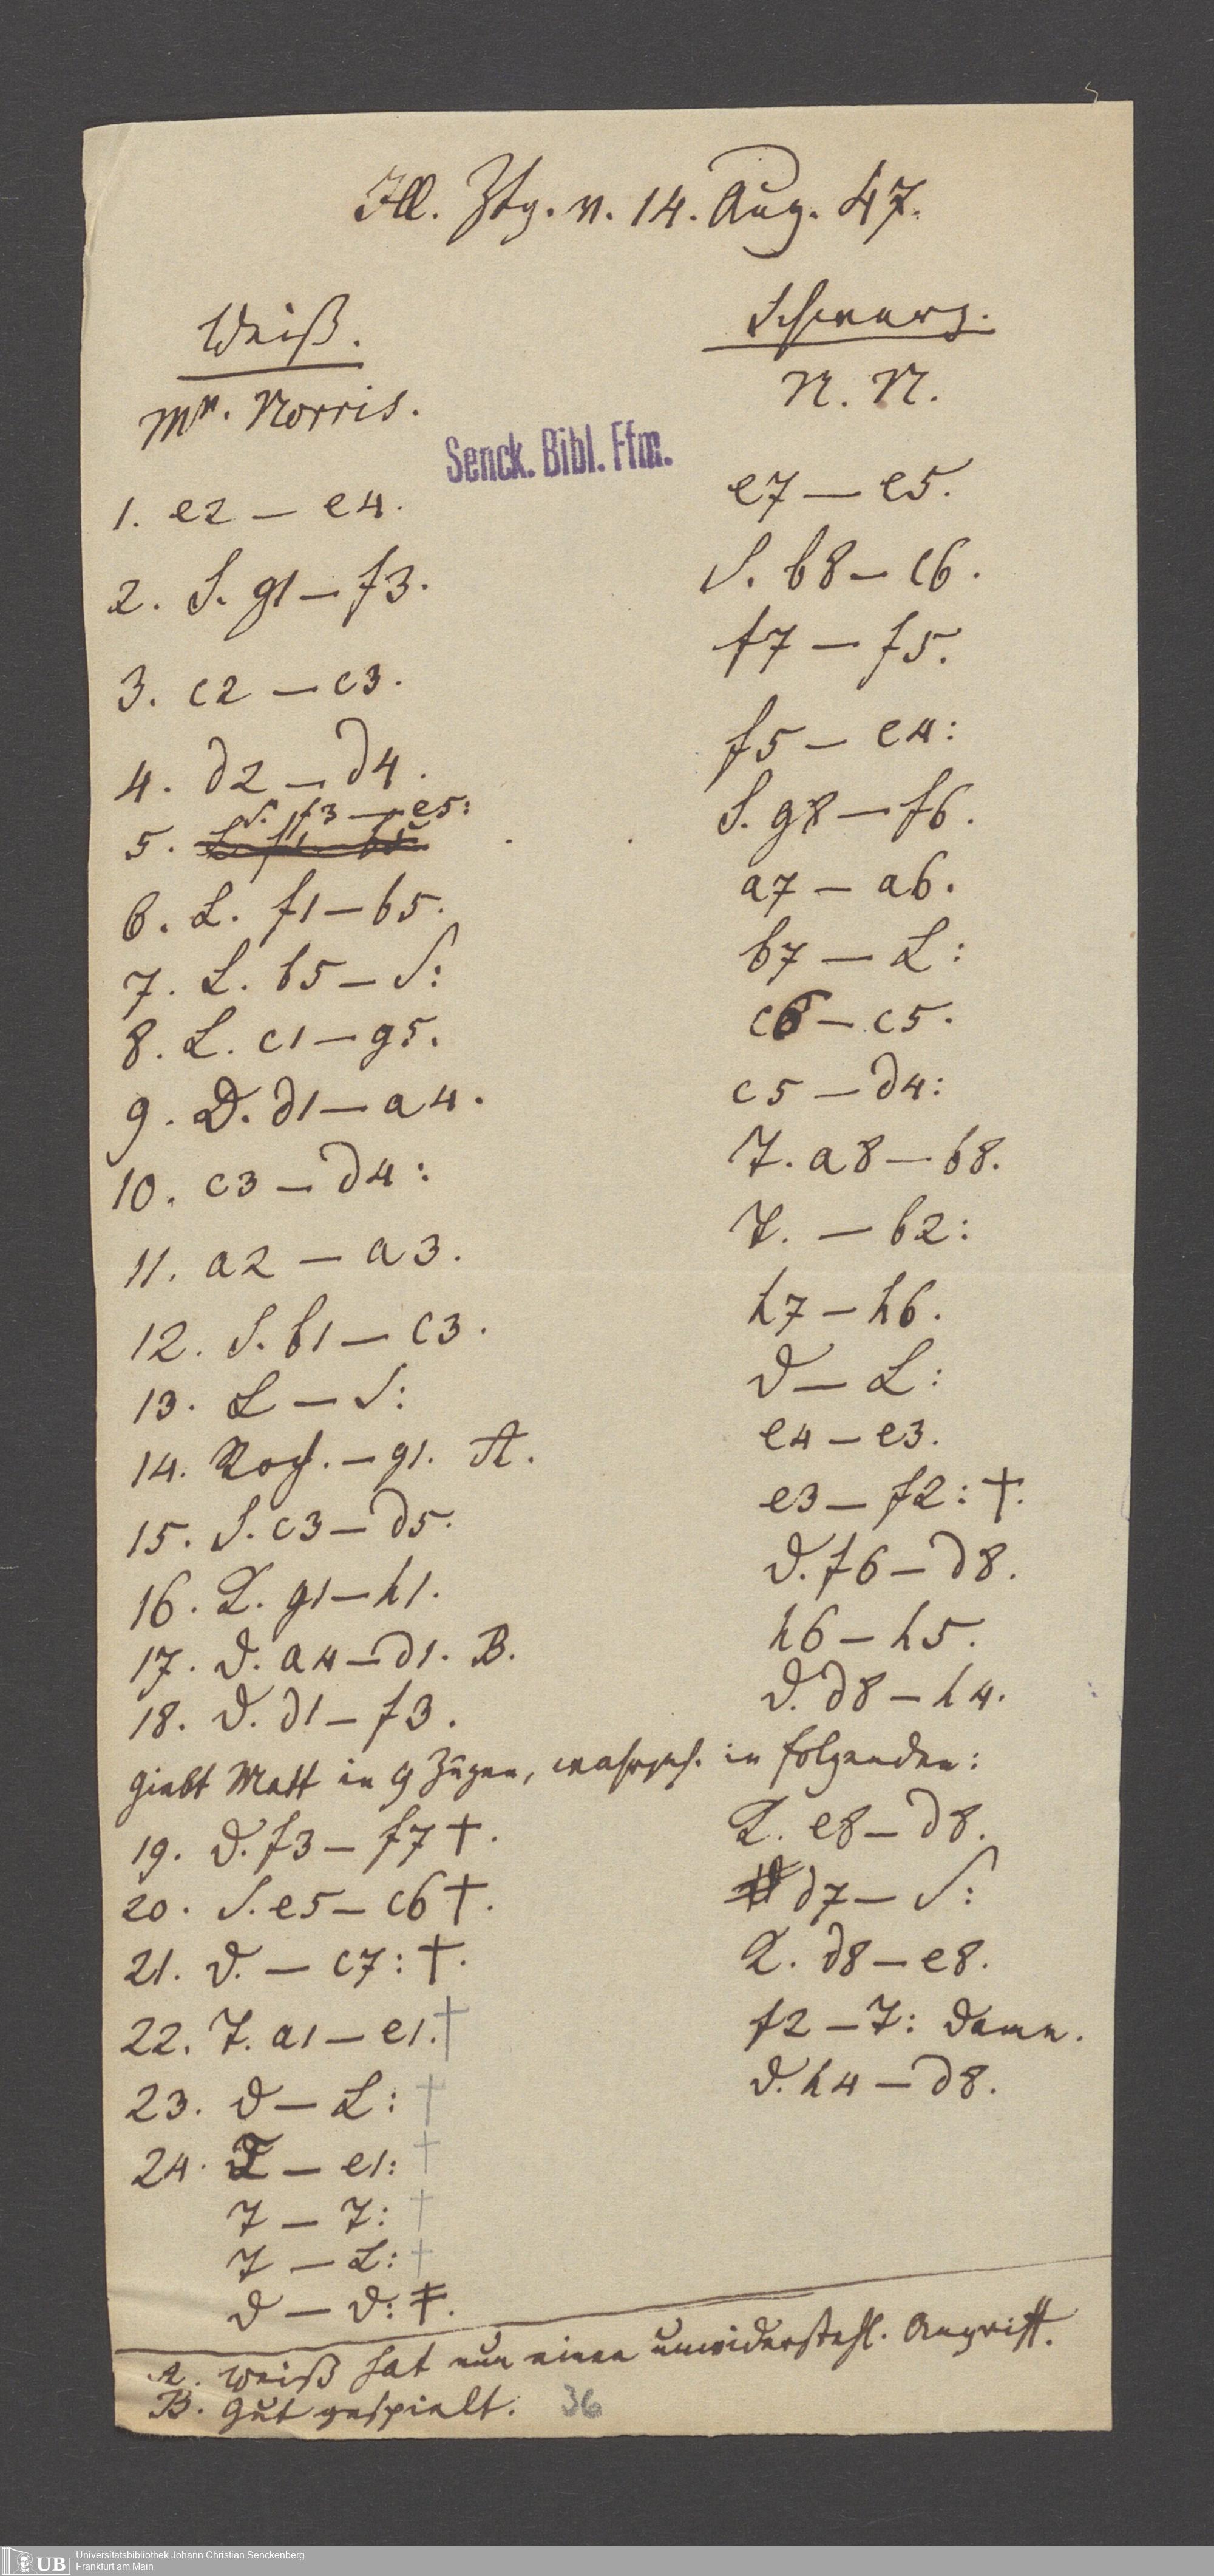 Ill. Ztg. v. 14. Aug. 47.
Weiß. Schwarz.
Mr. Norris. N. N.
Senck. Bibl. Ffm.
1. e2 — e4. e7 — e5.
2. S. g1 — f3. S. b8 — c6.
3. c2 — c3. f7 — f5.
4. d2 — d4. f5 — e4:
S. f3 — e5:
5. L. f1 — b5 S. g8 — f6.
6. L. f1 — b5. a7 — a6.
7. L. b5 — S: b7 — L:
8. L. c1 — g5. c6 — c5.
9. D. d1 — a4. c5 — d4:
10. c3 — d4: T. a8 — b8.
11. a2 — a3. T. — b2:
12. S. b1 — c3. h7 — h6.
13. L — S: D — L:
14. Roch. — g1. A. e4 — e3.
15. S. c3 — d5. e3 — f2: †.
16. K. g1 — h1. D. f6 — d8.
17. D. a4 — d1. B. h6 — h5.
18. D. d1 — f3. D. d8 — h4.
giebt Matt in 9 Zügen, wahrsch. in folgenden:
19. D. f3 — f7 †. K. e8 — d8.
20. S. e5 — c6 †. d7 — S:
21. D. — c7: †. K. d8 — e8.
22. T. a1 — e1. † f2 — T: Dame.
23. D — L: † D. h4 — d8.
24. T — e1: †
T — T: †
T — L: †
D — D: ‡.
A. Weiß hat nun einen unwiderstehl. Angriff.
B. Gut gespielt. 36
UB Universitätsbibliothek Johann Christian Senckenberg
Frankfurt am Main